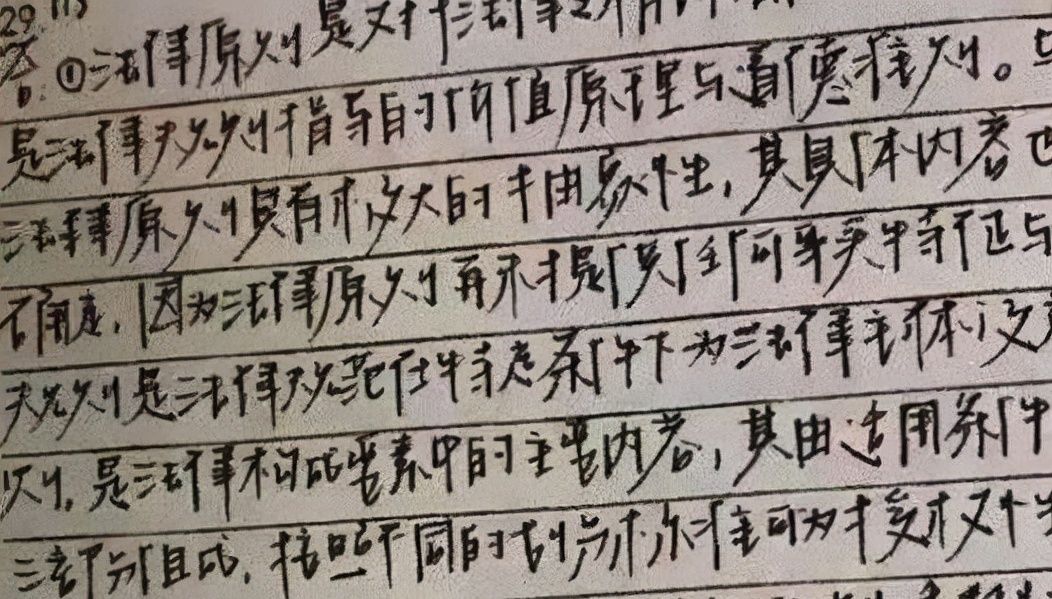 29.
答:①法律原则是对法律
是法律规则背后的价值原理与道德准则。与
法律原则具有极大的抽象性,其具体内容也
不确定,因为法律原则再不提供任何事实特征与
规则是法律规范在特定条件下为法律主体设定
则,是法律构成要素中的主要内容,其由适用条件
三部分组成,按照不同的划分标准可为授权性